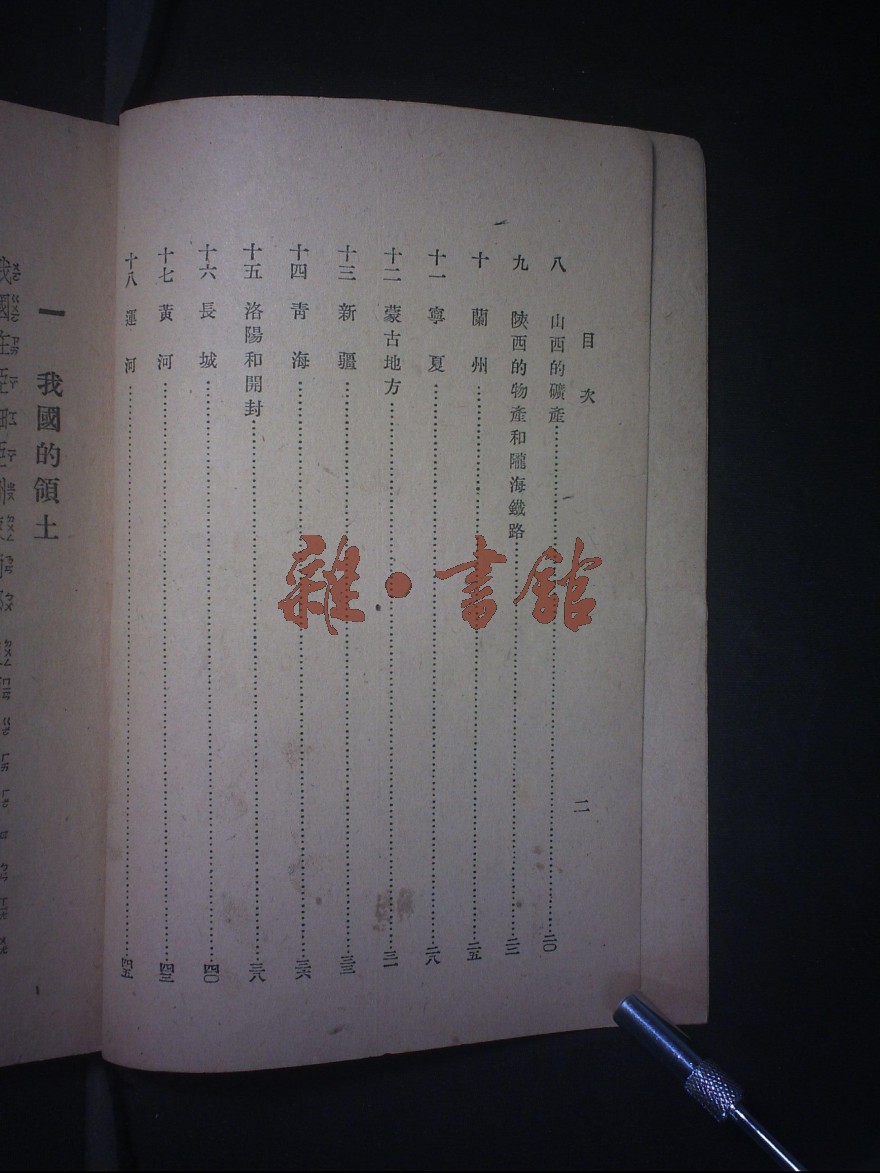 目次 二
八 山西的礦產……二〇
九 陝西的物產和隴海鐵路……二二
十 蘭州……二五
十一 寧夏……二八
十二 蒙古地方……三一
十三 新疆……三三
十四 青海……三六
十五 洛陽和開封……三八
十六 長城……四〇
十七 黃河……四三
十八 運河……四五
一 我國的領土
我國在亞細亞洲
雜·書館